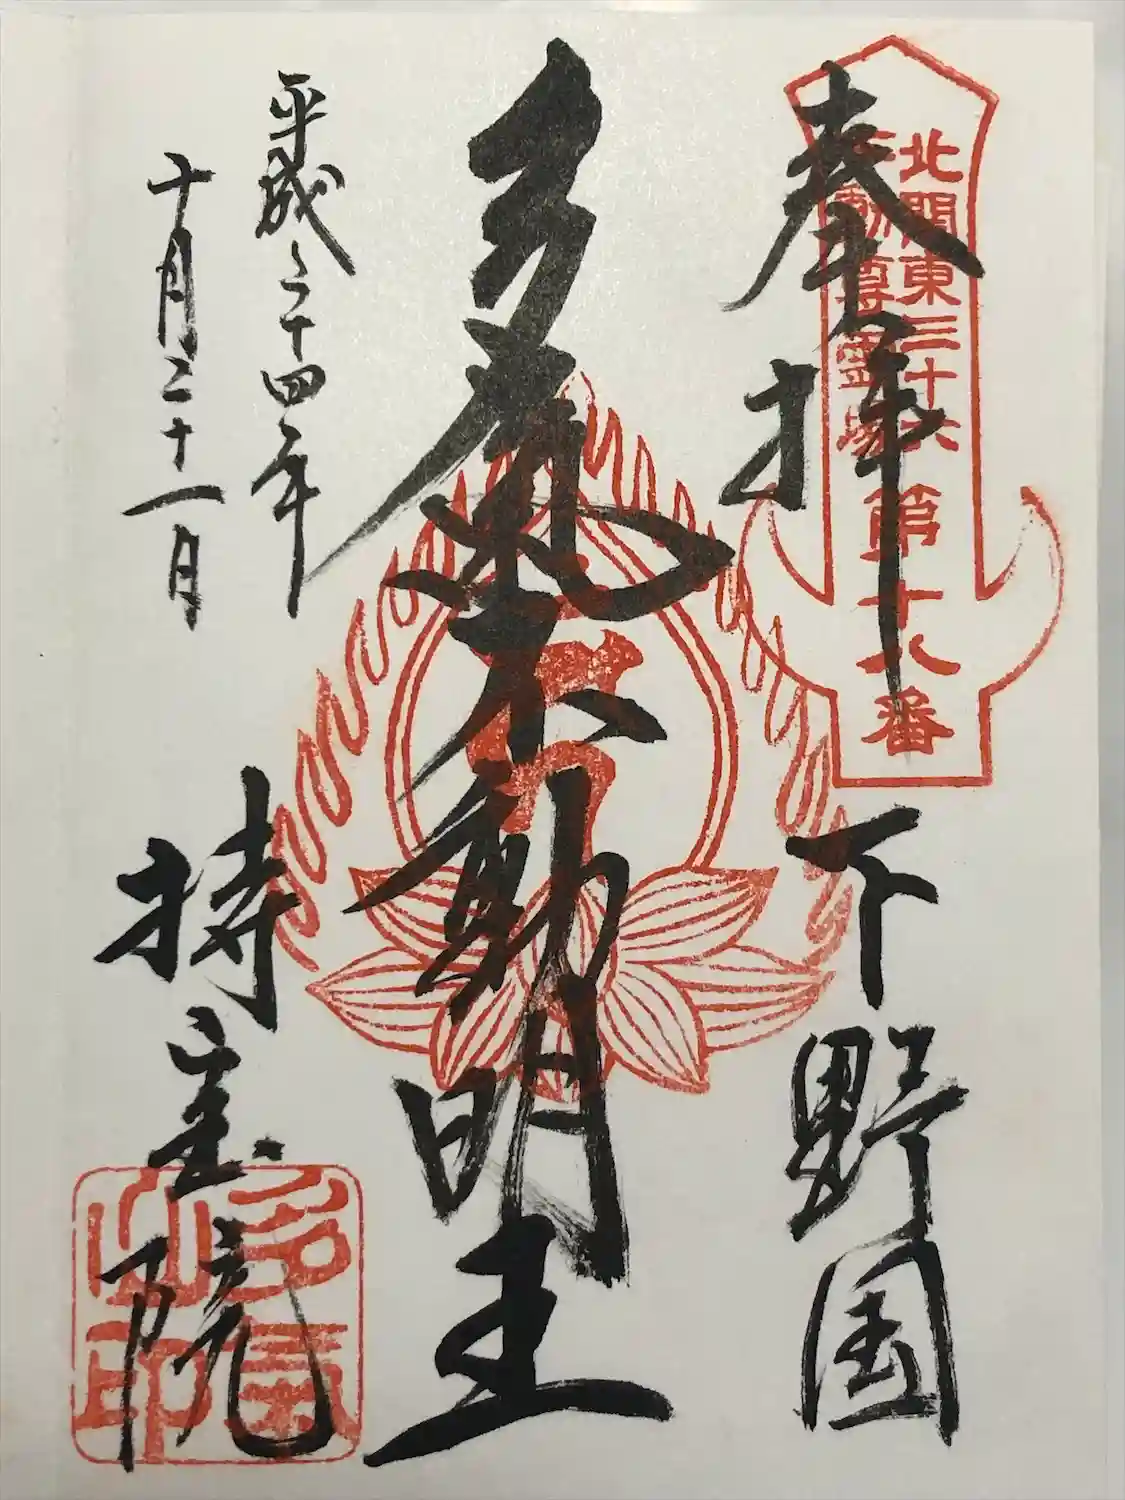 奉拝
下野国
北関東三十六
不動尊霊場
第十八番
多氣不動明王
平成二十四年
十月二十一日
持宝院
多氣
山印